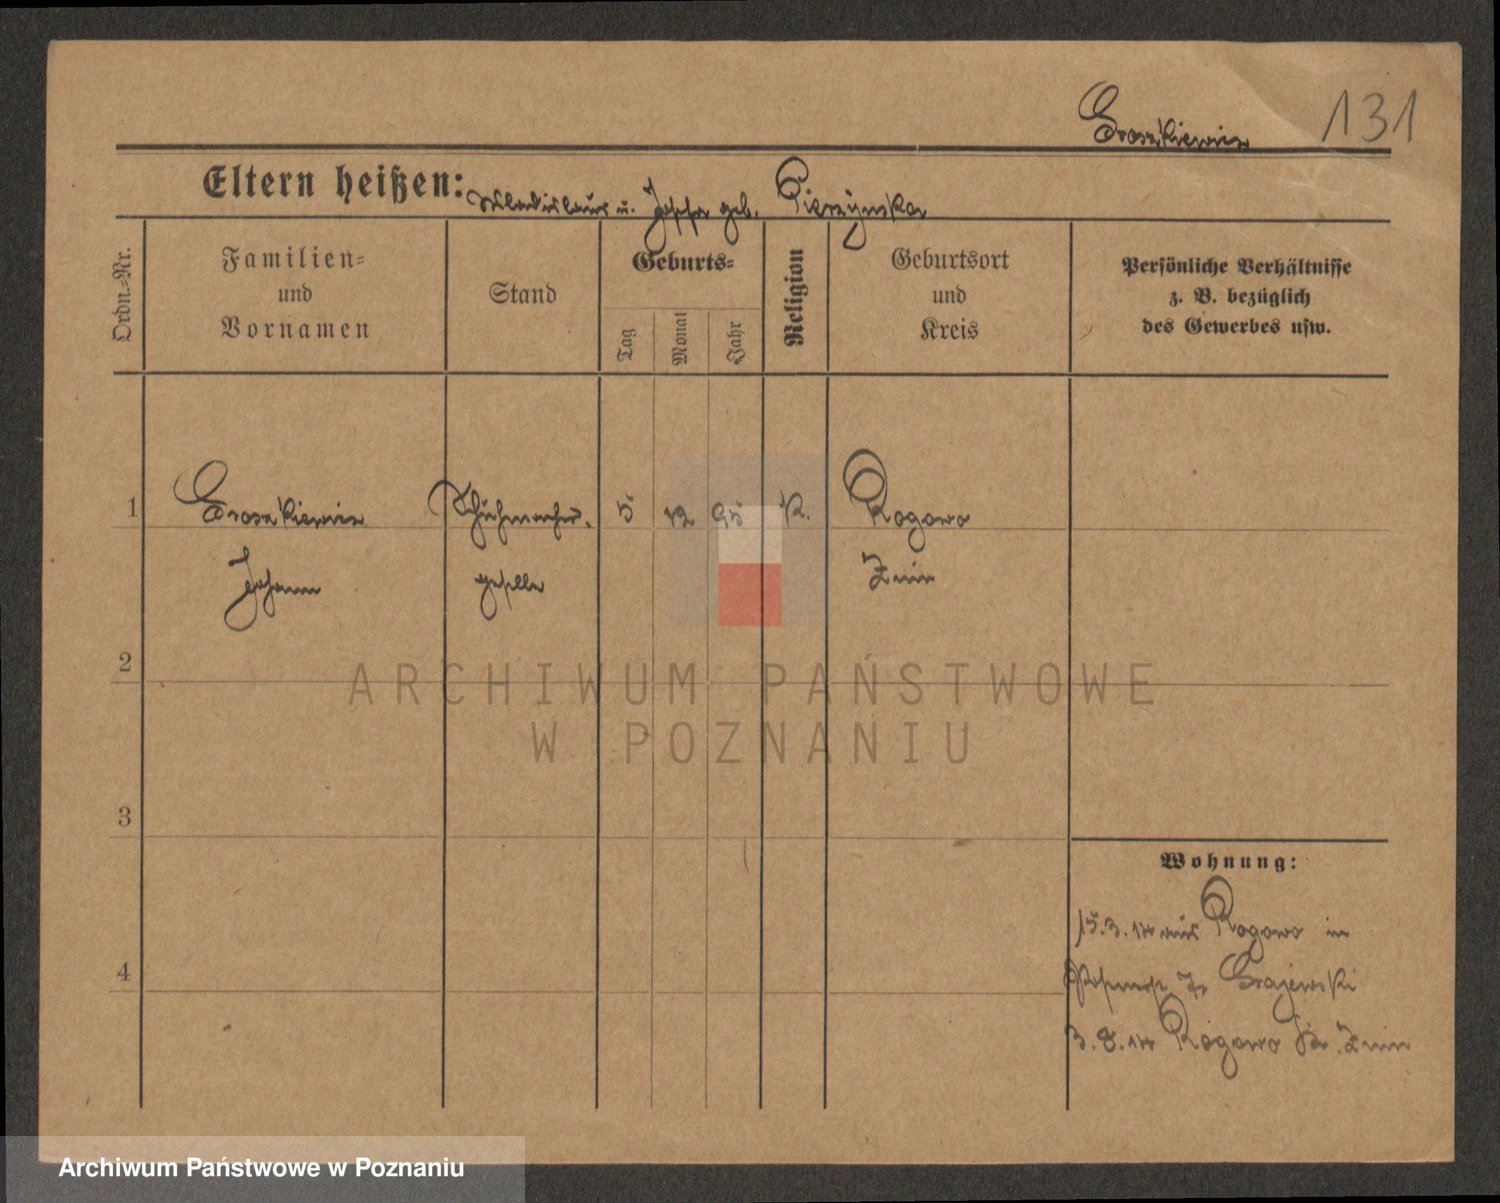 Groszkiewicz 131
Eltern heißen: Wladislaus u. Josefa geb. Pierzynska
Ordn.-Nr.
Familien-
und
Vornamen
Stand
Geburts-
Tag
Monat
Jahr
Religion
Geburtsort
und
Kreis
Persönliche Verhältnisse
z. B. bezüglich
des Gewerbes usw.
1 Groszkiewicz Schuhmacher- 5 12 95 K. Rogowo
Johann geselle Znin
2
3
4
Wohnung:
15.3.14 aus Rogowo in
7 Grajewski
3.8.14 Rogowo Kr. Znin
ARCHIWUM PAŃSTWOWE
W POZNANIU
Archiwum Państwowe w Poznaniu